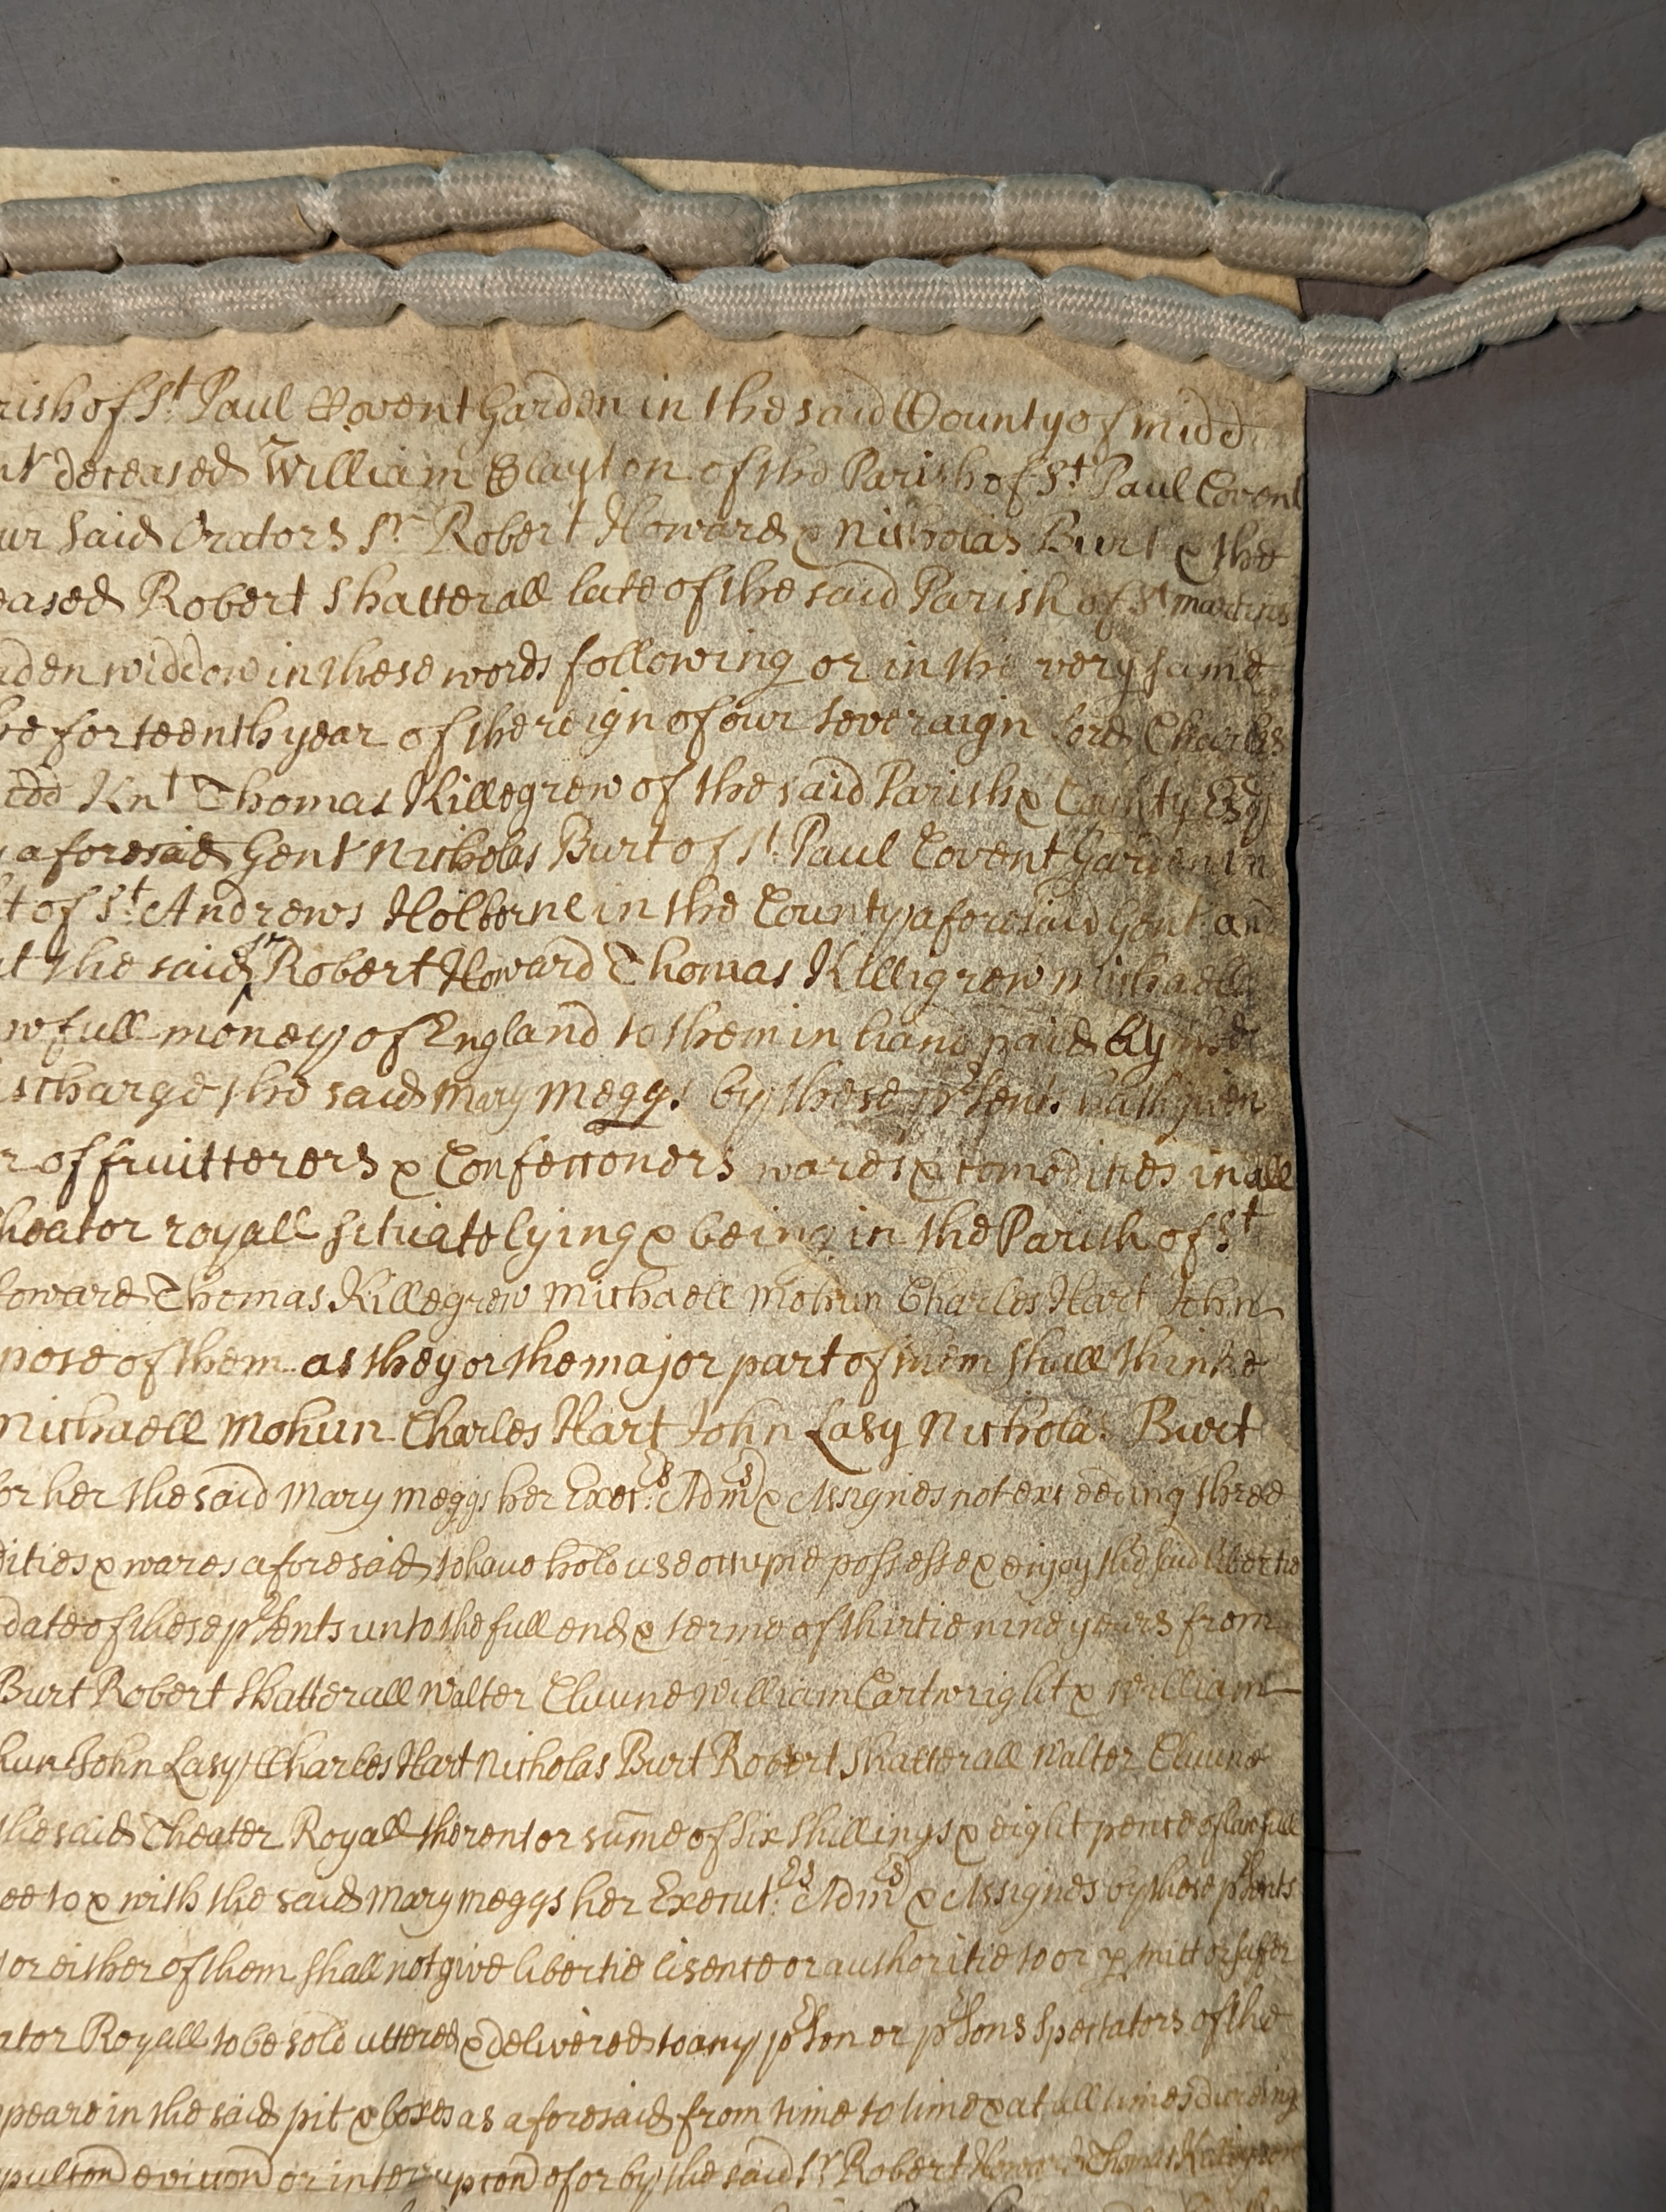 rish of St. Paul Covent Garden in the said County of Midd
nt deceased William Clayton of the Parish of St Paul Covent
ur said Orators Sr Robert Howard & Nicholas Burt & the
eased Robert Shatterall late of the said Parish of St martins
rden widdow in these words following or in the very same
he forteenth year of the reign of our Soveraign Lord Charles
idd Knt Thomas Killegrew of the said Parish & County Esq
aforesaid Gent Nicholas Burt of St. Paul Covent Garden in
t of St. Andrews Holborne in the County aforesaid Gent and
t the said Sr Robert Howard Thomas Killigrew Michaell
wfull money of England to them in hand paid by the
ischarge the said Mary Meggs by these prsents hath given
r of fruitterers & Confecconers wares & comodities in all
heator royall scituate lying & being in the Parish of St
oward Thomas Killegrew Michaell Mohun Charles Hart John
pose of them as they or the major part of them shall thinke
Michaell Mohun Charles Hart John Lasy Nicholas Burt
or her the said Mary Meggs her Execrs: Admrs & Assignes not exceeding three
dities & wares aforesaid to have hold use occupie possesse & enjoy the said libertie
date of these prsents unto the full end & terme of thirtie nine years from
Burt Robert Shatterall Walter Cluune William Cartwright & William
hun John Lasy Charles Hart Nicholas Burt Robert Shatterall Walter Cluune
the said Theater Royall the rent or sume of Six Shillings & eight pence of lawfull
ee to & with the said Mary Meggs her Executrs: Admrs & Assignes by these prsents
or either of them shall not give libertie lisence or authoritie to or pmitt or suffer
ator Royall to be sold uttered & delivered to any prson or prsons Spectators of the
peare in the said pit & boxes as aforesaid from time to time & at all times dureing
pulcon eviccon or interrupcon of or by the said Sr Robert Howard Thomas Killigrew